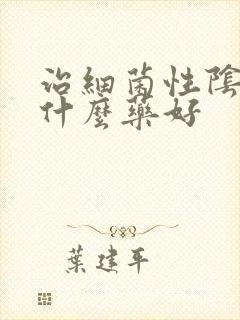 治細菌性陰
什麼藥好
葉建平